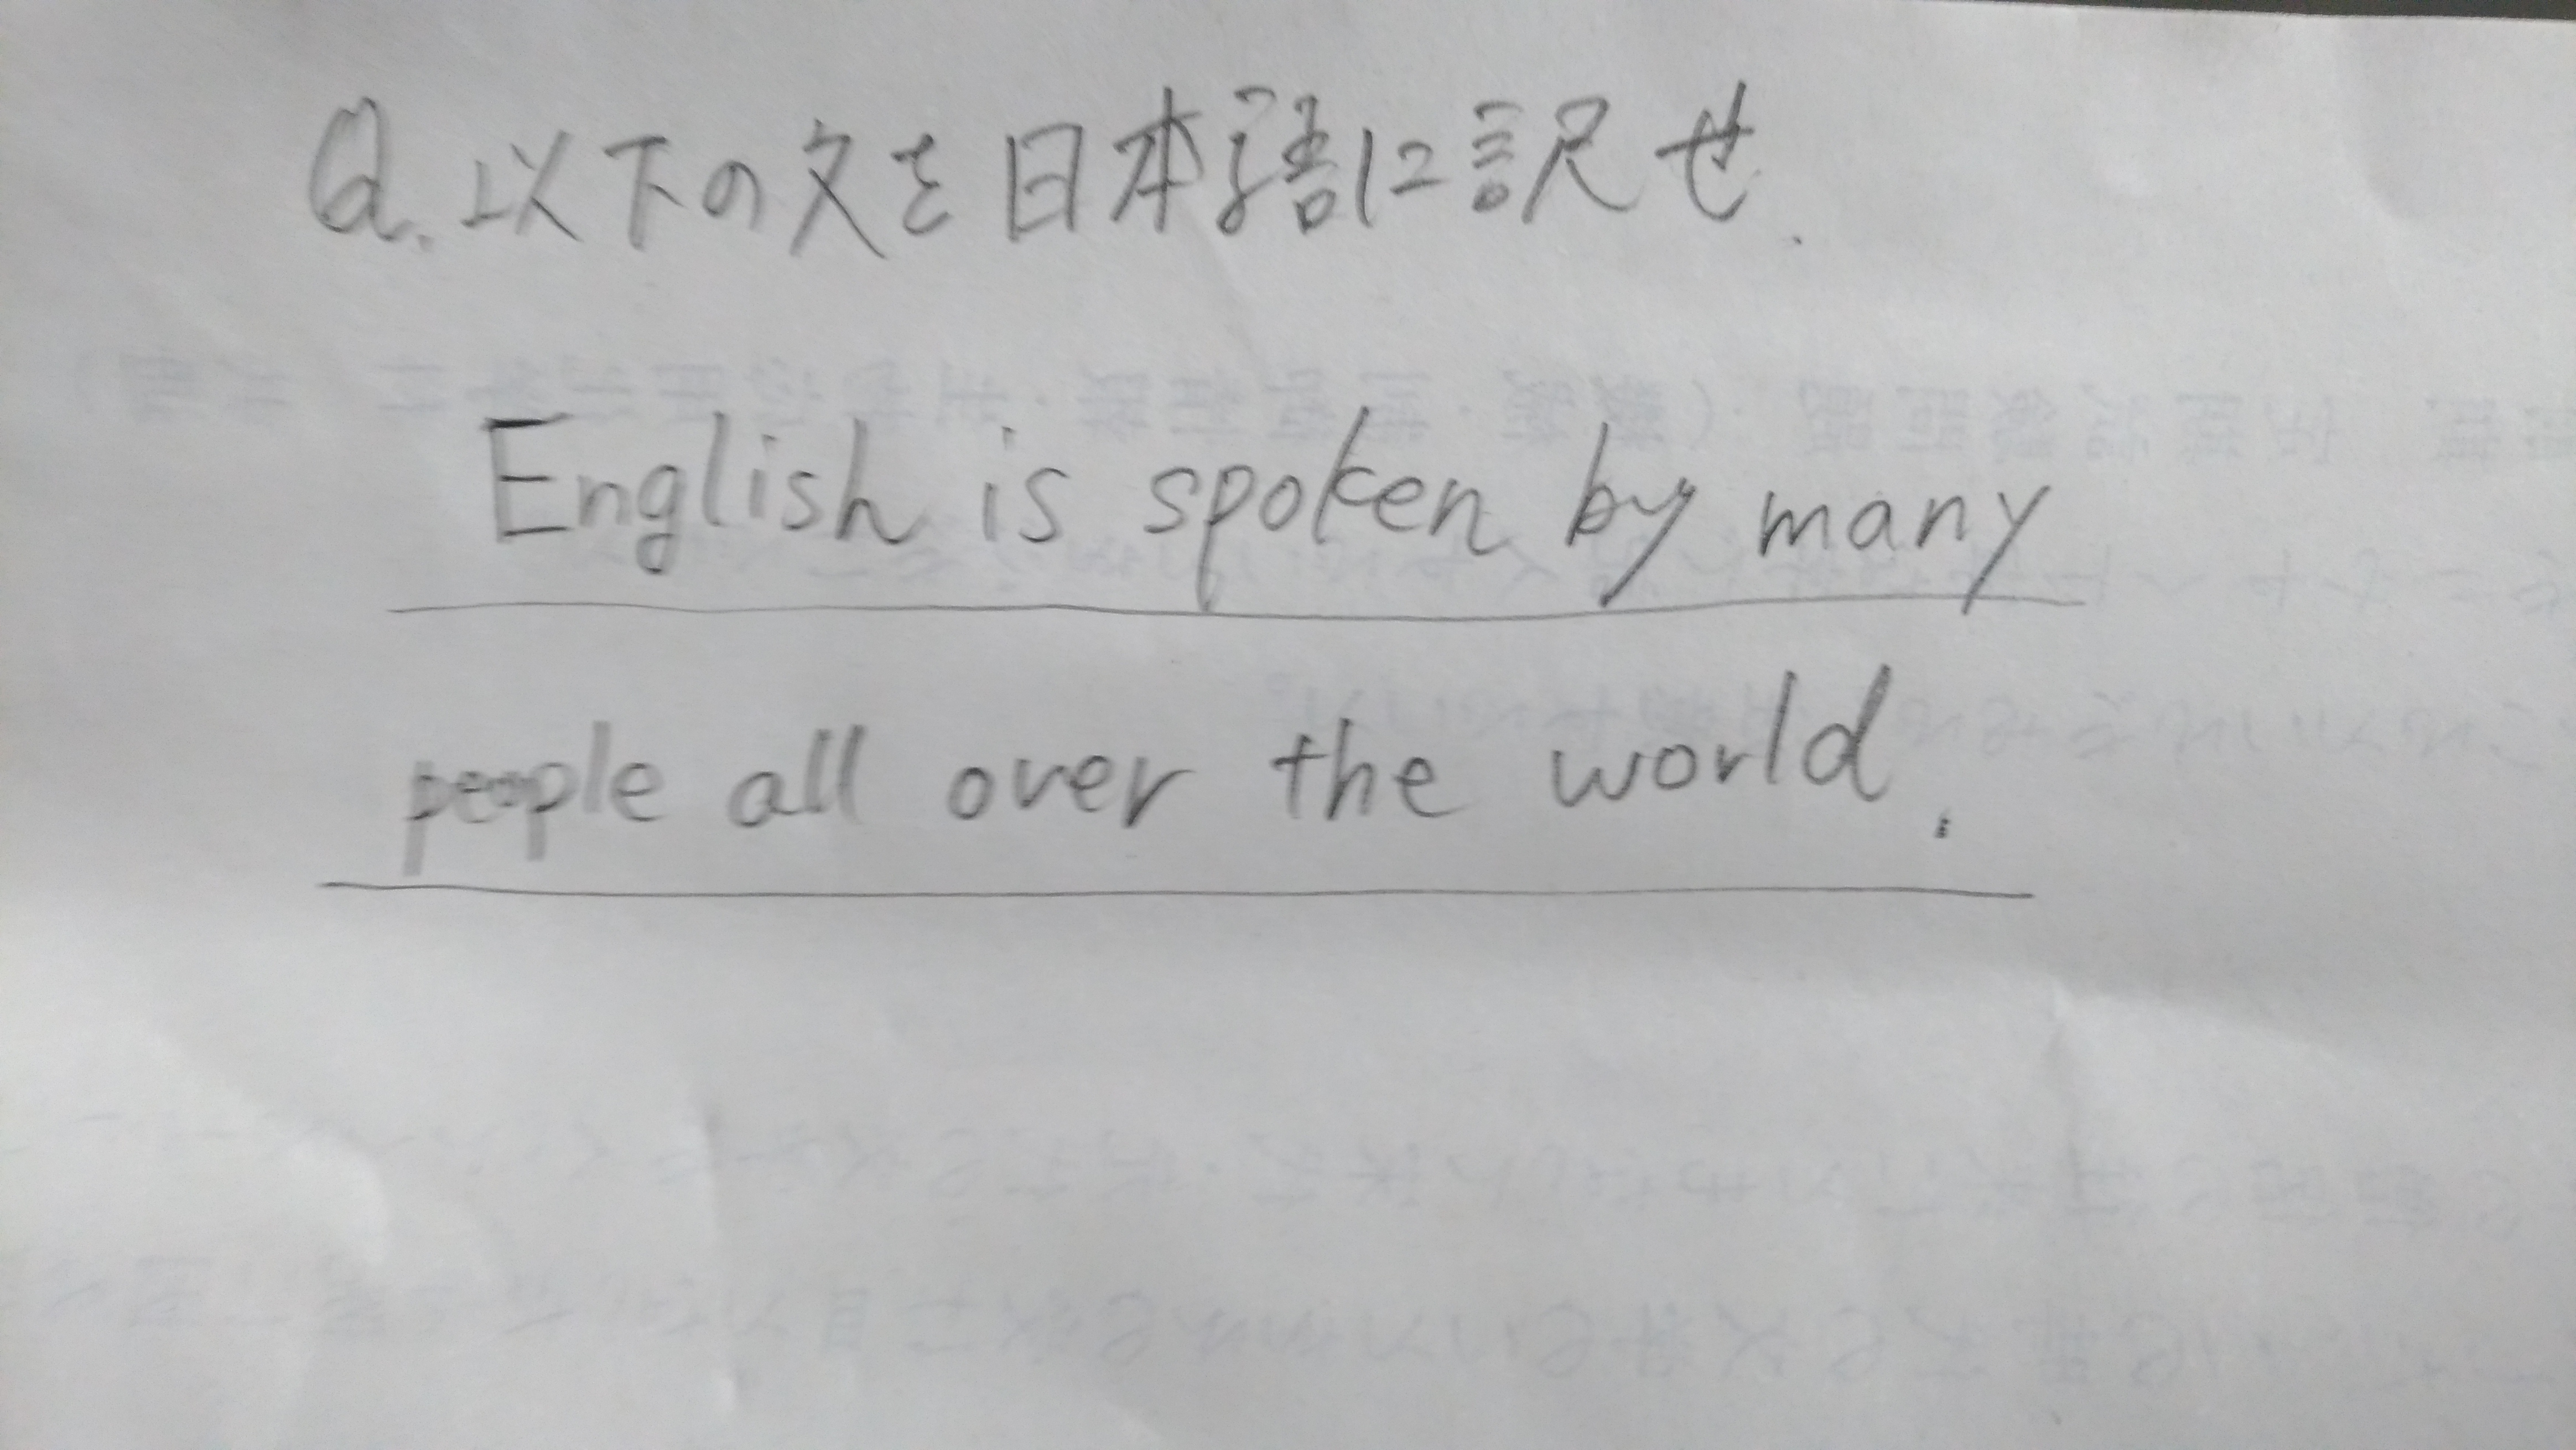 Q.以下の文を日本語に訳せ.
English is spoken by many
people all over the world.